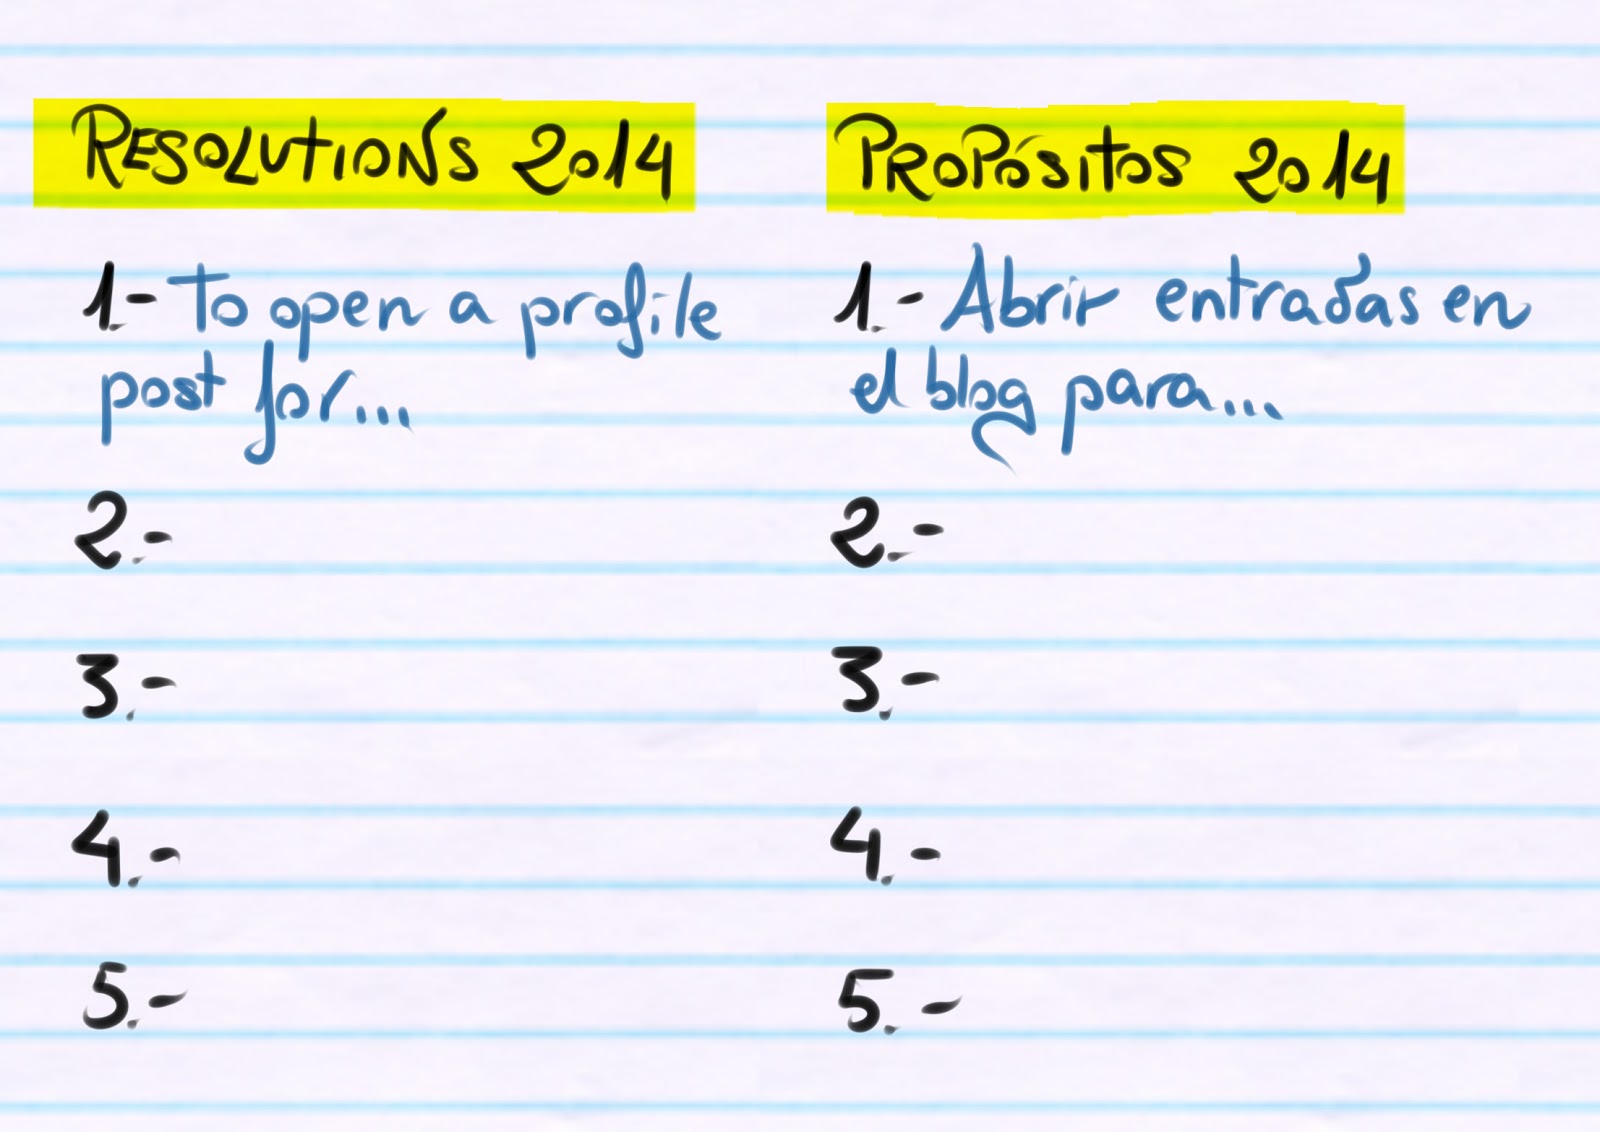 RESOLUTIONS 2014
1.- To open a profile
post for...
2.-
3.-
4.-
5.-
PROPÓSITOS 2014
1.- Abrir entradas en
el blog para...
2.-
3.-
4.-
5.-